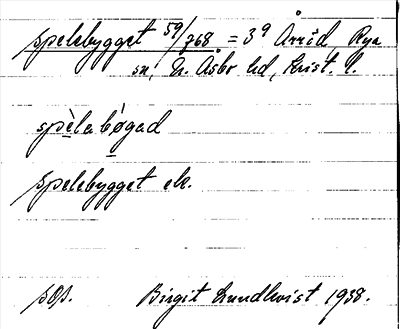 Spelebygget 59/768 = 39 Årröd, Rya
sn, N. Åsbo hd, Krist. l.
spèlebǿgad
Spelebygget ek.
sos. Birgit Lundkvist 1938.